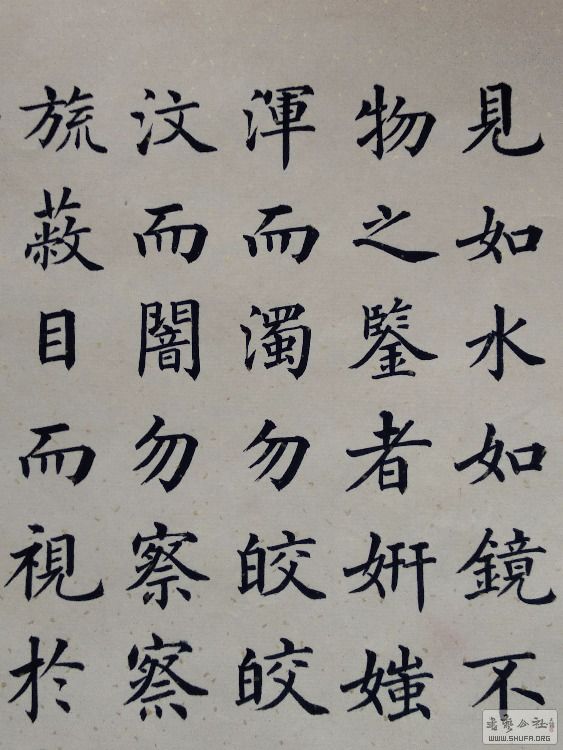 見如水如鏡不
物之鑒者妍媸
渾而濁勿皎皎
汶而闇勿察察
旒蔽目而視於
WWW.SHUFA.ORG